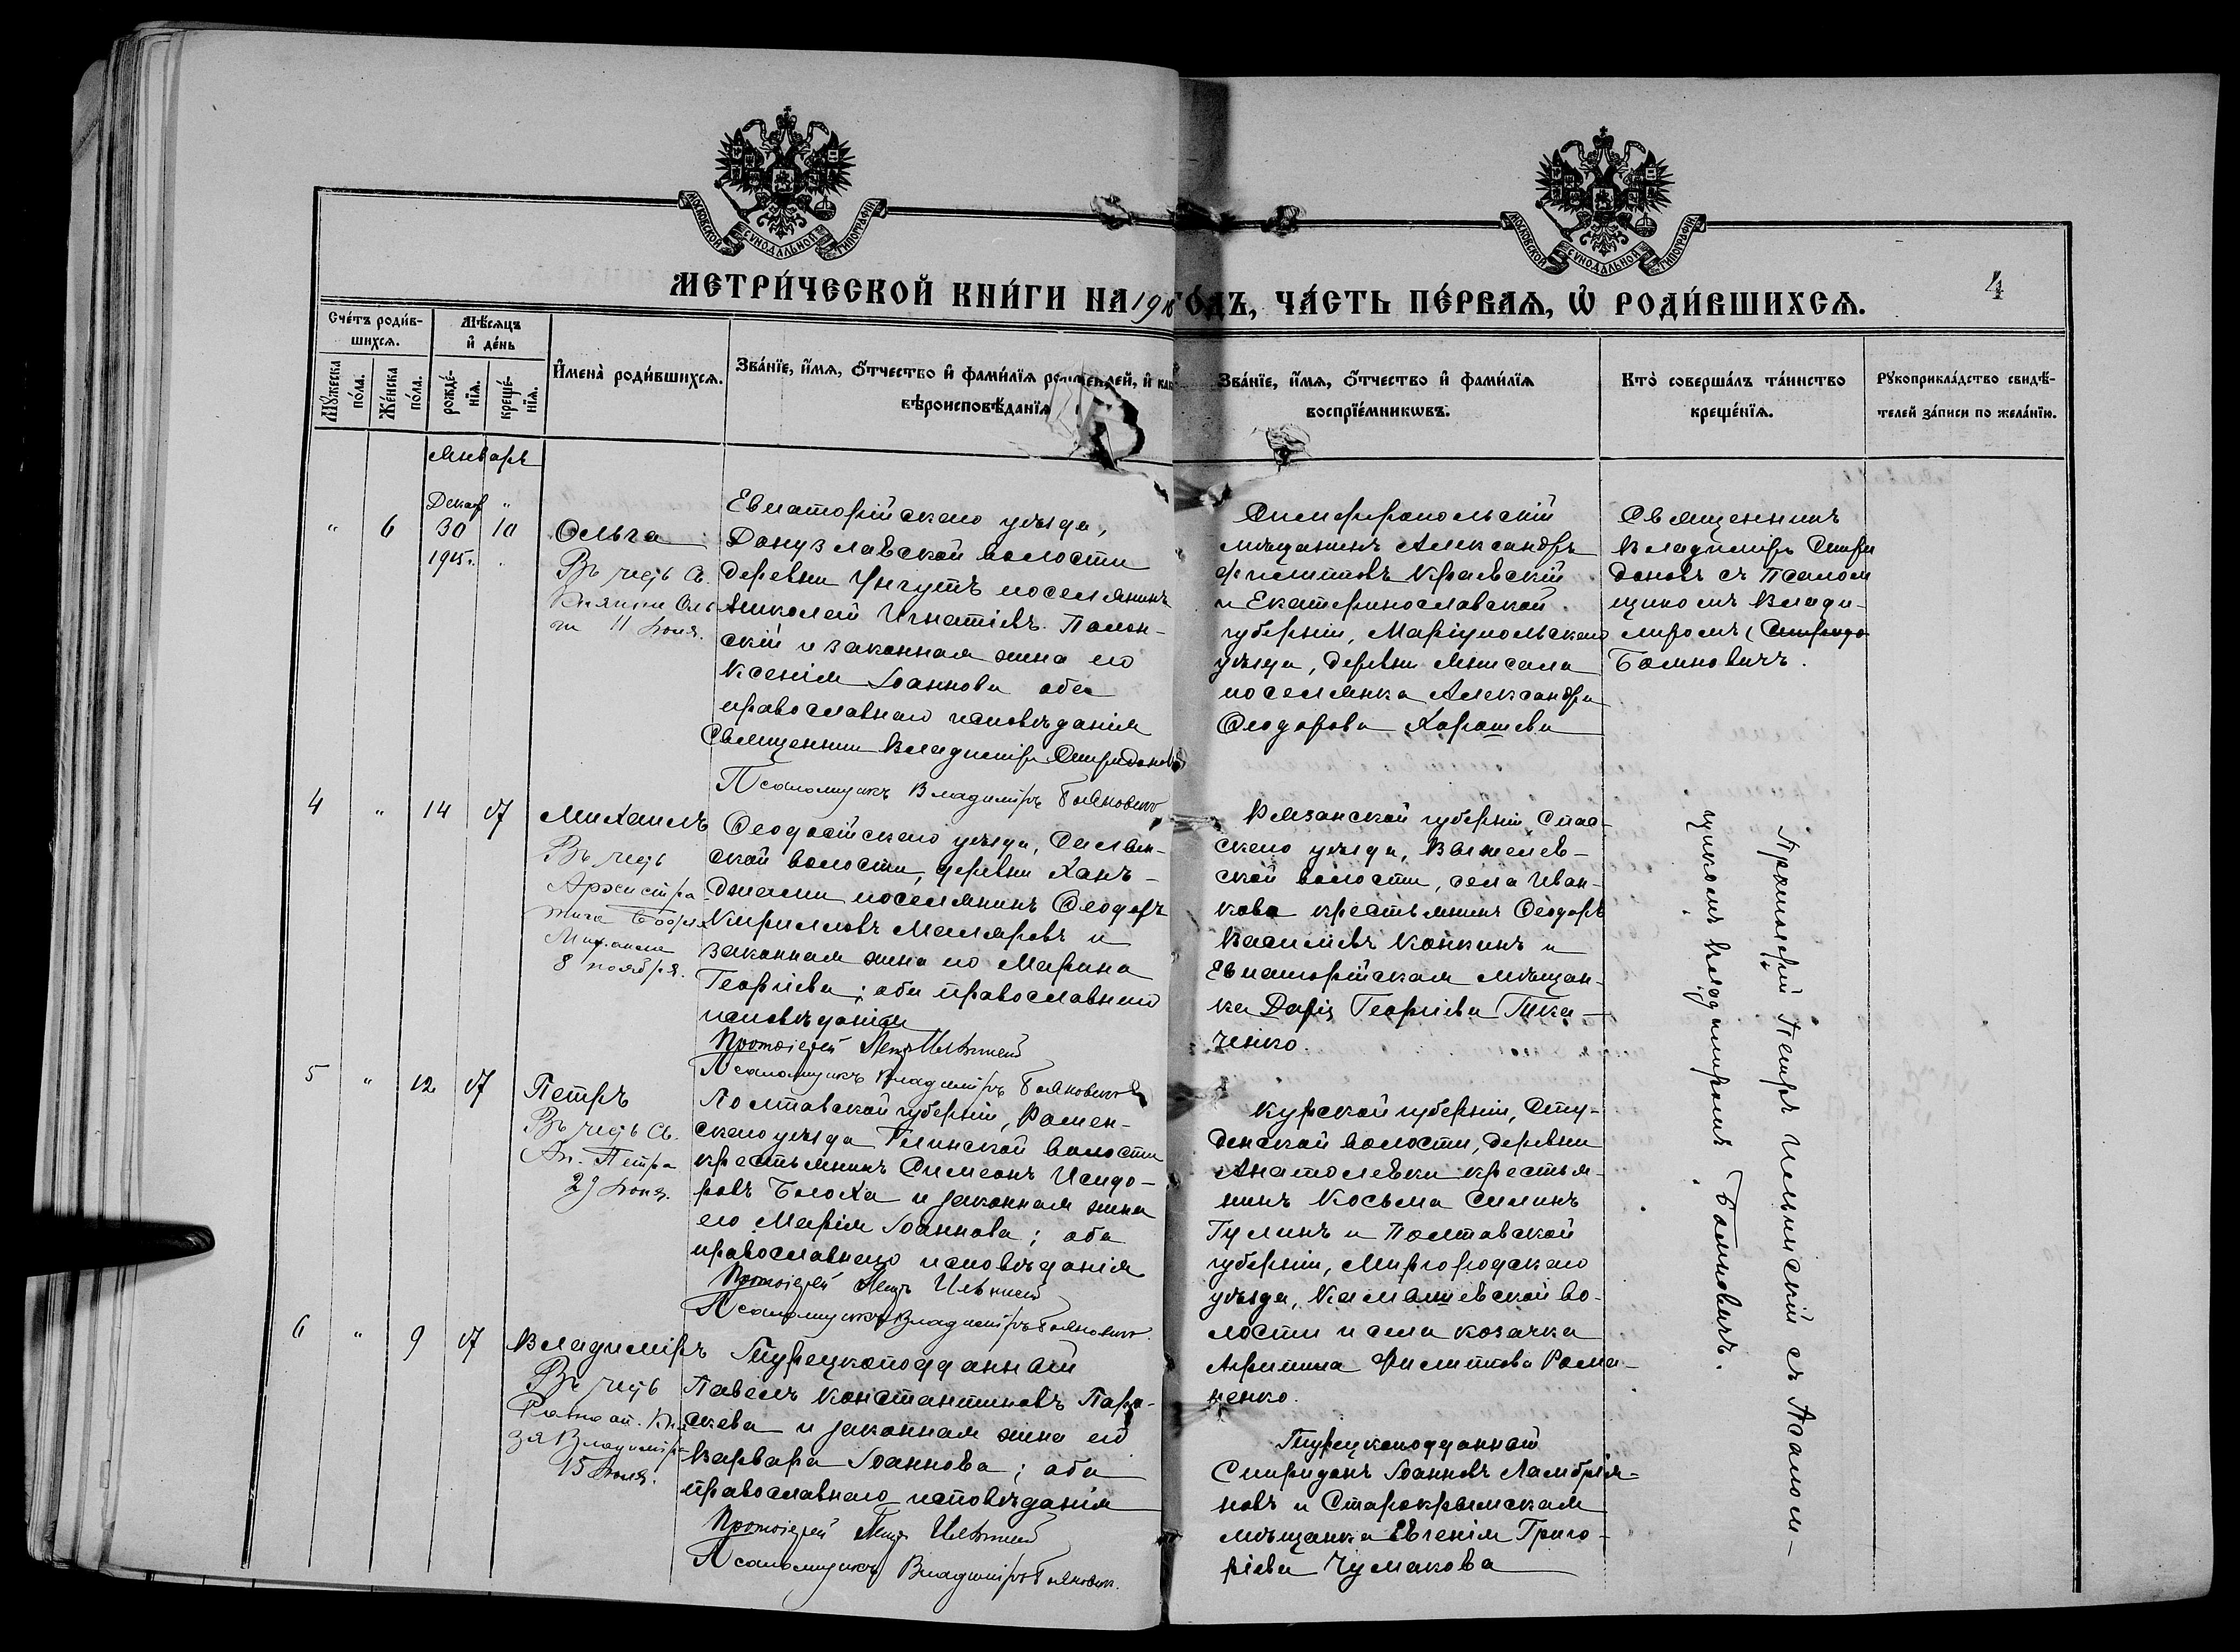 МОСКОВСКОЙ СѴНОДАЛЬНОЙ ТИПОГРАФІИ
МОСКОВСКОЙ СѴНОДАЛЬНОЙ ТИПОГРАФІИ
4
МЕТРИ́ЧЕСКОЙ КНИ́ГИ НА 19 ГО́ДЪ, ЧА́СТЬ ПЕ́РВАѦ, Ѡ҆ РОДИ́ВШИХСѦ.
Сче́тъ роди́в-
шихсѧ.
Мѣ́сѧцъ
и҆ де́нь
Мꙋ́жеска по́ла.
Же́нска по́ла.
рожде́-
нїѧ.
креще́-
нїѧ.
И҆мена̀ роди́вшихсѧ.
Зва́нїе, и҆́мѧ, ѻ҆́тчество и҆ фами́лїѧ родителей, и҆
вѣроисповѣ́данїѧ
Зва́нїе, и҆́мѧ, ѻ҆́тчество и҆ фами́лїѧ
воспрїе́мникѡвъ.
Кто̀ соверша́лъ та́инство
креще́нїѧ.
Рꙋкоприкла́дство свидѣ́-
телей за́писи по жела́нїю.
Январь
" 6 Декаб. 30 1915 г. " 10
Ольга
Въ честь Св.
Княгини Оль
ги 11 Іюля.
Евпаторійскаго уѣзда,
Донузлавской волости
деревни Унгутъ поселянинъ
Николай Игнатіевъ Полон-
скій и законная жена его
Ксенія Іоаннова оба
православнаго исповѣданія
Священникъ Владиміръ Спиридоновъ
Псаломщикъ Владиміръ Бояновичъ
Симферопольскій
мѣщанинъ Александръ
Филипповъ Краевскій
и Екатеринославской
губерніи, Маріупольскаго
уѣзда, деревни Янисала
поселянка Александра
Ѳеодорова Хорошева
Священникъ
Владиміръ Спири
доновъ съ Псалом
щикомъ Влади-
міромъ Спиридо
Бояновичъ.
4 " 14 17
Михаилъ
Въ честь
Архистра
тига Божія
Михаила
8 ноября.
Ѳеодосійскаго уѣзда, Салын-
ской волости, деревни Ханъ-
Джами поселянинъ Ѳеодоръ
Кирилловъ Маляровъ и
законная жена его Марина
Георгіева; оба православнаго
исповѣданія
Протоіерей Петръ Ильинскій
Псаломщикъ Владиміръ Бояновичъ
Рязанской губерніи Спас-
скаго уѣзда, Выжелев-
ской волости, села Иван-
кова крестьянинъ Ѳеодоръ
Василіевъ Конкинъ и
Евпаторійская мѣщан-
ка Дарія Георгіева Тка-
ченко.
Протоіерей Петръ Ильинскій съ Псалом-
щикомъ Владиміромъ Бояновичъ.
5 " 12 17
Петръ
Въ честь Св.
Ап. Петра
29 Іюня.
Полтавской губерніи, Ромен-
скаго уѣзда Глинской волости
крестьянинъ Симеонъ Исидо-
ровъ Блоха и законная жена
его Марія Іоаннова; оба
православнаго исповѣданія
Протоіерей Петръ Ильинскій
Псаломщикъ Владиміръ Бояновичъ.
Курской губерніи, Сту-
денской волости, деревни
Анатолевки крестья-
нинъ Косьма Силинъ
Гулинъ и Полтавской
губерніи, Миргородскаго
уѣзда, Камышевской во-
лости и села козачка
Агрипина Филиппова Рома-
ненко.
6 " 9 17
Владиміръ
Въ честь
Равноап. Кня
зя Владиміра
15 Іюля.
Турецкоподданный
Павелъ Константиновъ Пара-
скева и законная жена его
Варвара Іоаннова; оба
православнаго исповѣданія
Протоіерей Петръ Ильинскій
Псаломщикъ Владиміръ Бояновичъ.
Турецкоподданный
Спиридонъ Іоанновъ Ламбрія-
новъ и Старокрымская
мѣщанка Евгенія Григо-
ріева Чумакова